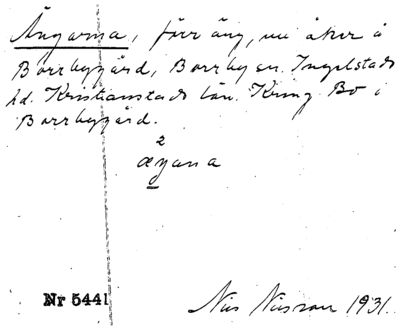 Ängarna, förr äng, nu åker å
Borrbygård, Borrby sn. Ingelstads
hd. Kristianstads län. Kring Bo i
Borrbygård.
2
æŋana
Nr 5441
Nils Nilsson 1931.